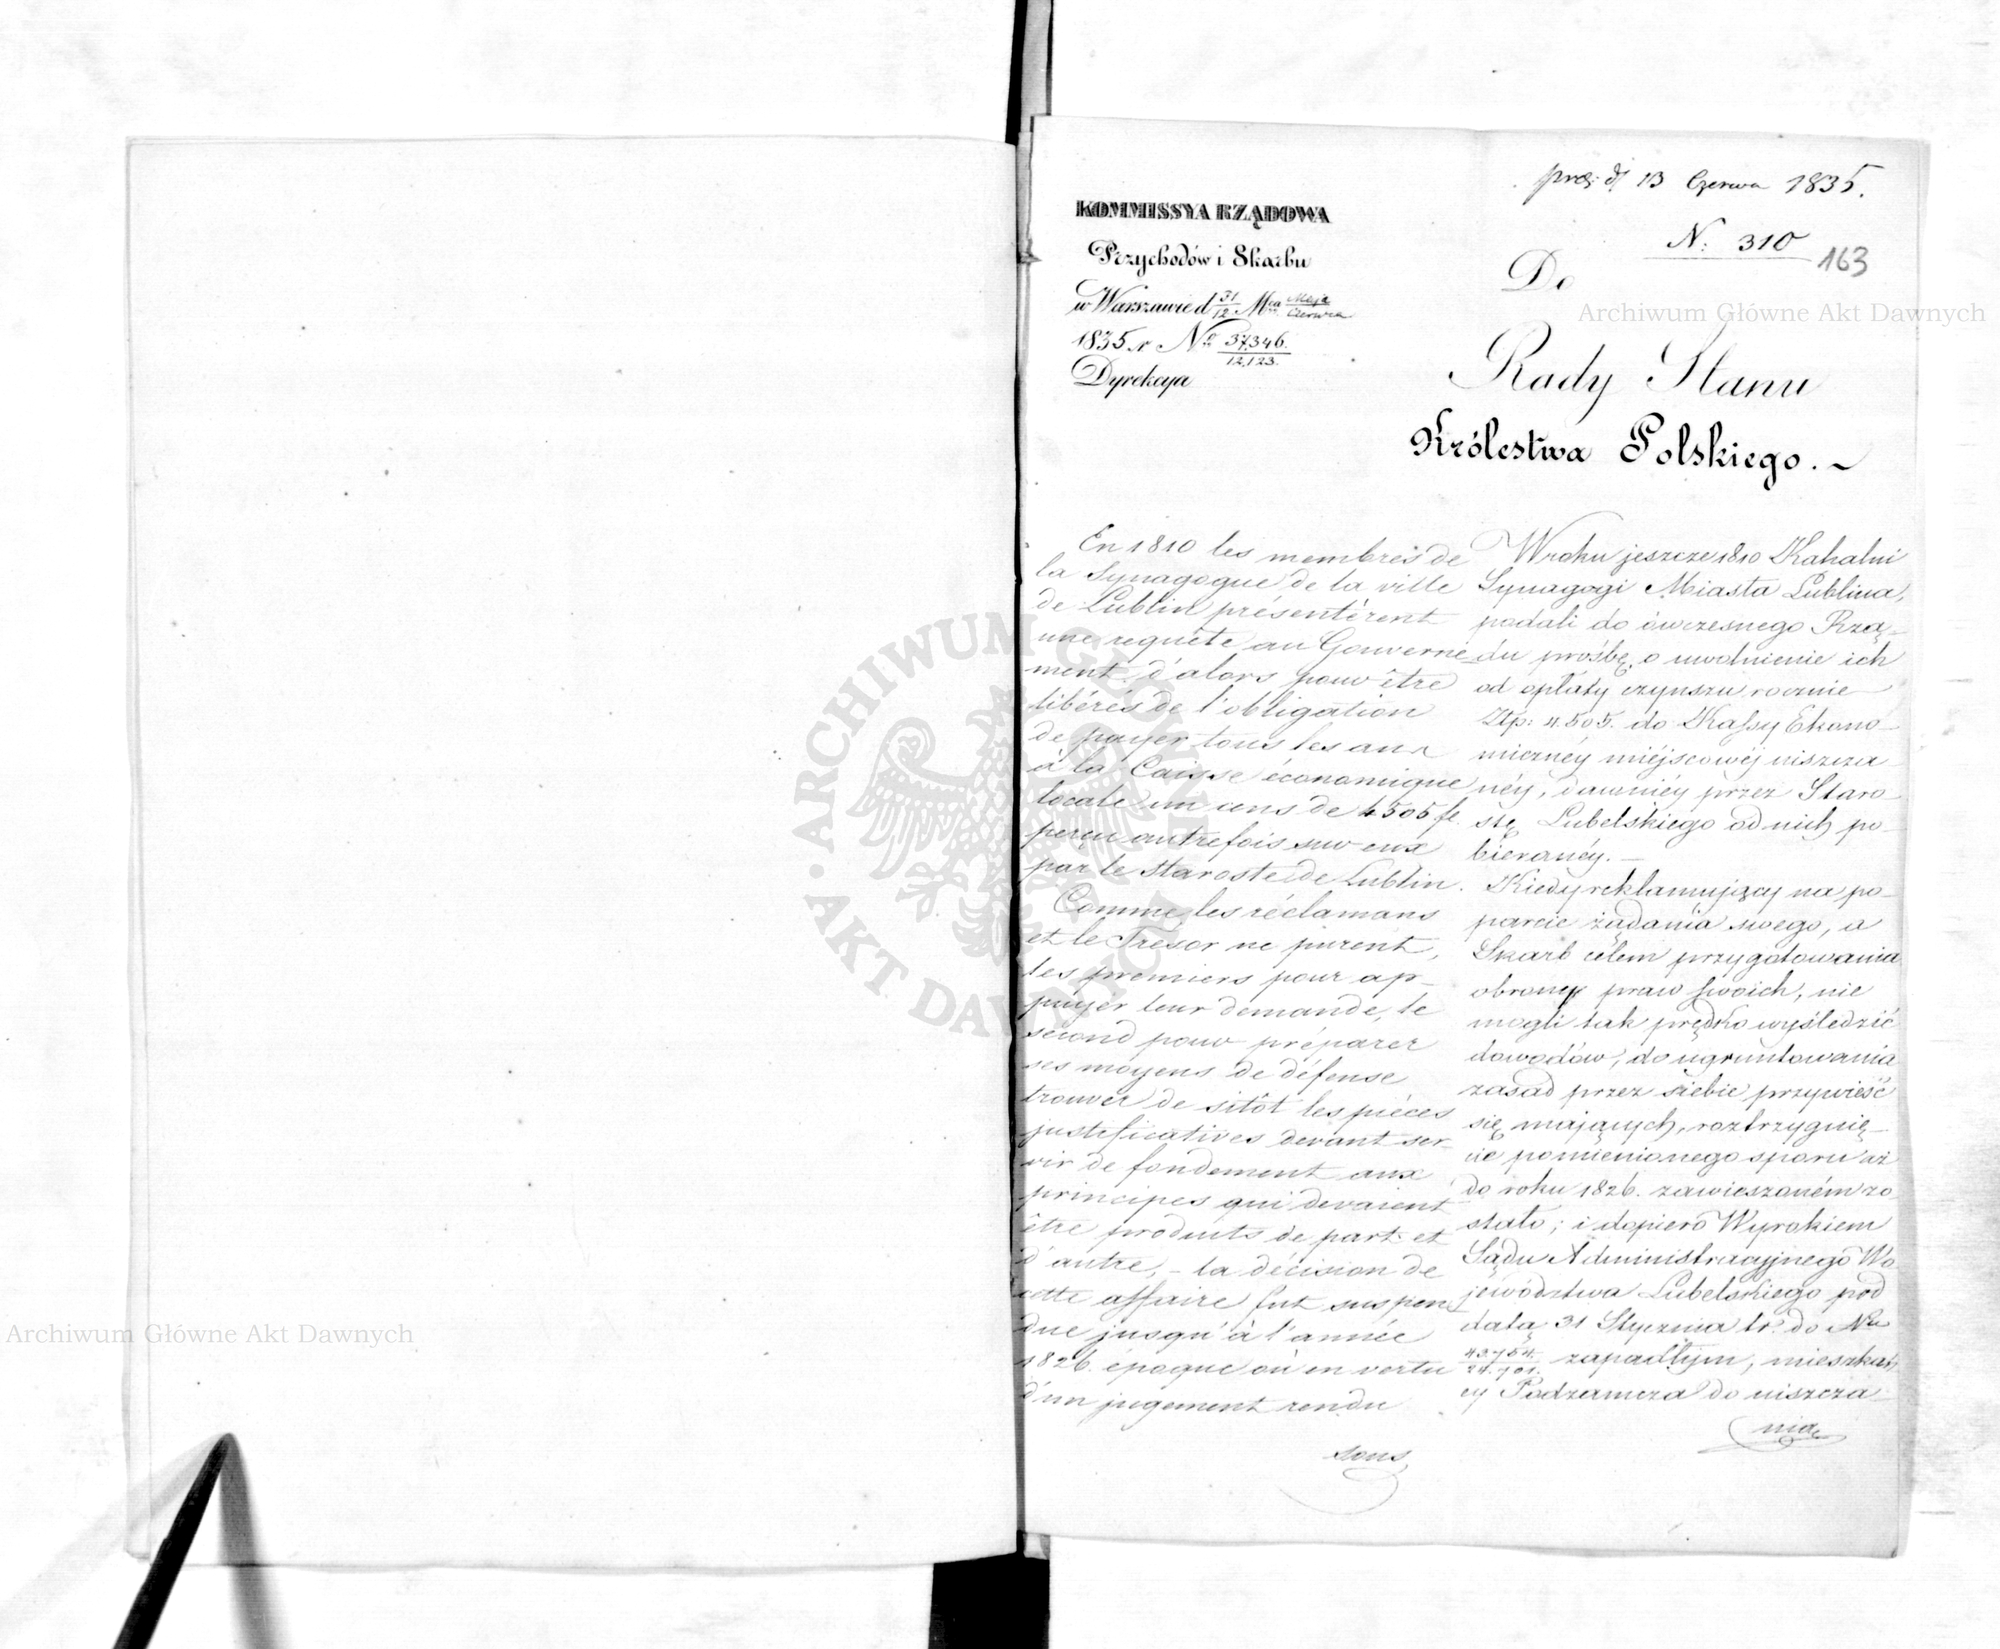 prez: d. 13 Czerwca 1835.
N: 310
163
KOMMISSYA RZĄDOWA
Przychodów i Skarbu
w Warszawie d 31/12 Mca Maja/Czerwca
1835 r No 37,346./12,123.
Dyrekcya
Do
Rady Stanu
Królestwa Polskiego. ~
En 1810 les membres de
la Synagogue de la ville
de Lublin présentèrent
une requête au Gouverne
ment d'alors pour être
libérés de l'obligation
de payer tous les ans
à la Caisse économique
locale un cens de 4505 fl.
perçu autrefois sur eux
par le staroste de Lublin.
Comme les réclamans
et le Trésor ne purent,
les premiers pour ap-
puyer leur demande, le
second pour préparer
ses moyens de défense
trouver de sitôt les pièces
justificatives devant ser
vir de fondement aux
principes qui devaient
être produits de part et
d'autre, - la décision de
cette affaire fut suspen
due jusqu'à l'année
1826. époque où en vertu
d'un jugement rendu
sous
W roku jeszcze 1810 Kahalni
Synagogi Miasta Lublina,
podali do ówczesnego Rzą-
du prośbę o uwolnienie ich
od opłaty czynszu rocznie
Złp: 4.505. do Kassy Ekono-
micznéy miéjscowéj uiszcza
néy, dawniéy przez Staro
stę Lubelskiego od nich po-
bieranéy. -
Kiedy reklamujący na po-
parcie żądania swego, a
Skarb celem przygotowania
obrony praw swoich, nie
mogli tak prędko wyśledzić
dowodów, do ugruntowania
zasad przez siebie przywieść
się mających, roztrzygnię-
cie pomienionego sporu aż
do roku 1826. zawieszoném zo
stało; i dopiero Wyrokiem
Sądu Administracyjnego Wo
jewództwa Lubelskiego pod
datą 31 Stycznia tr. do Nru
zapadłym, mieszkań
cy Podzamcza do uiszcza-
nia
Archiwum Główne Akt Dawnych
Archiwum Główne Akt Dawnych
ARCHIWUM GŁÓWNE · AKT DAWNYCH ·